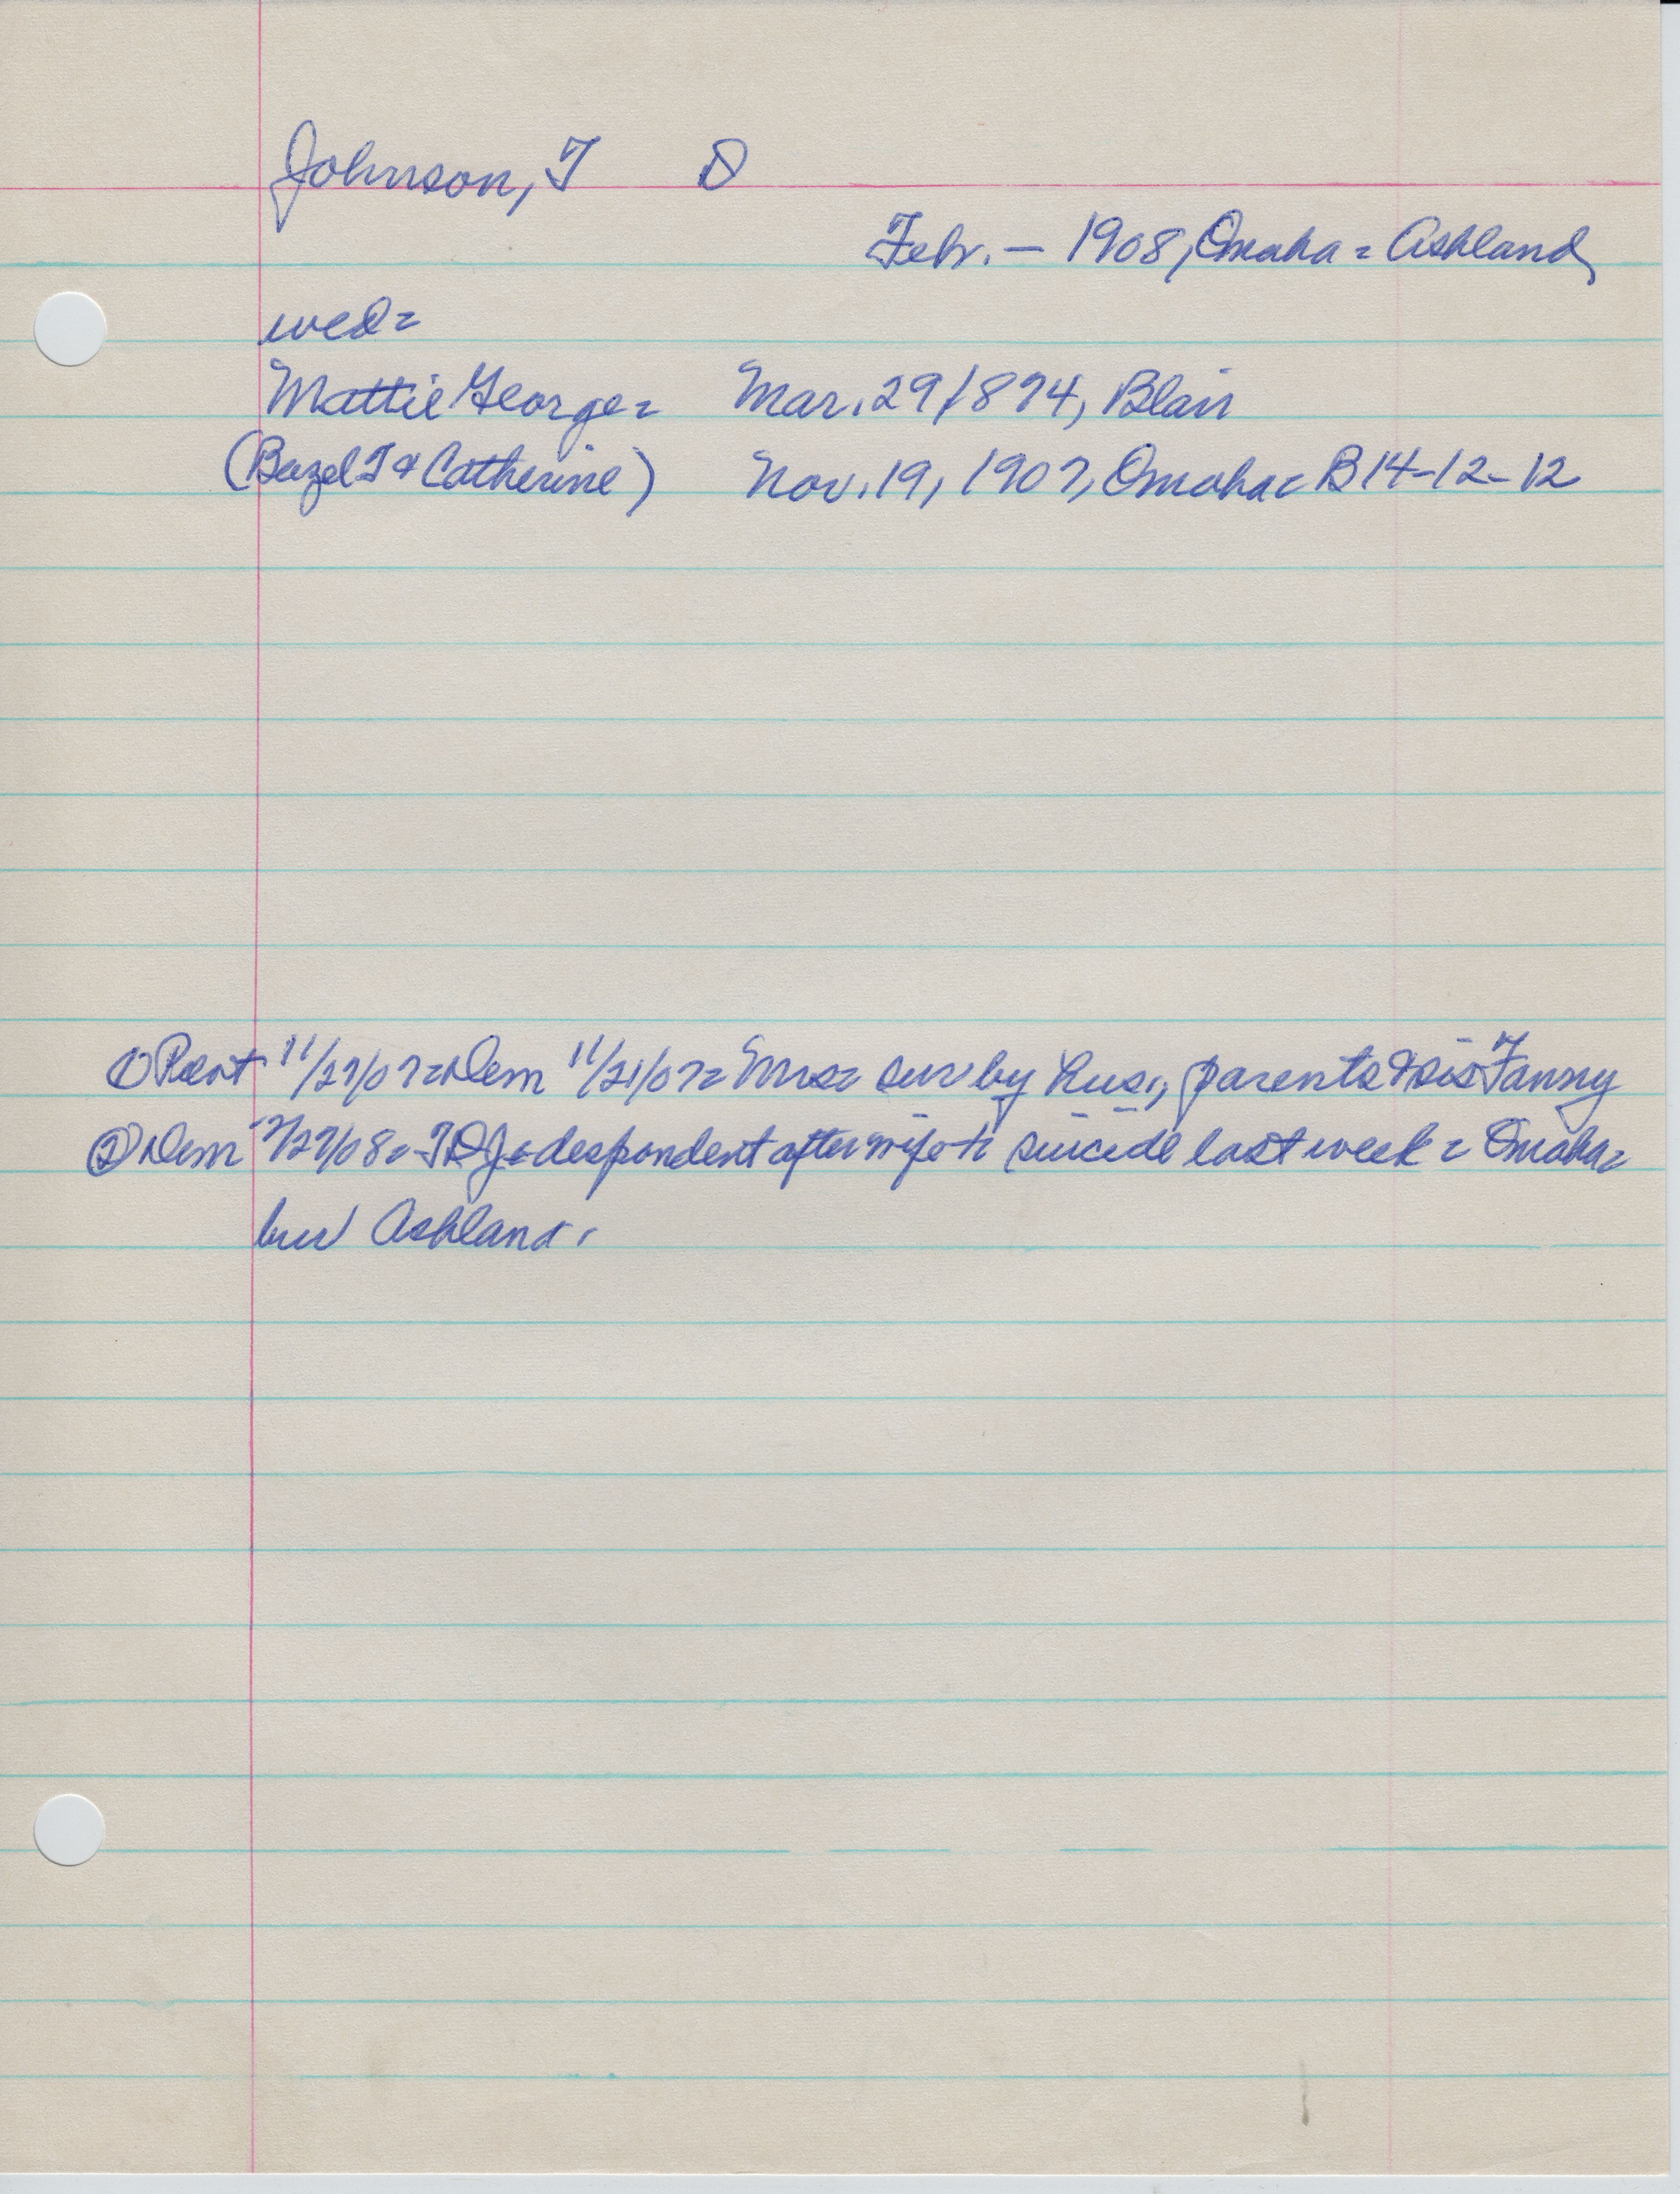 Johnson, T D
Febr. — 1908, Omaha = Ashland
wed =
Mattie George = Mar. 29/874, Blair
(Bazel T & Catherine) Nov. 19, 1907, Omaha = B 14-12-12
① 11/27/07 = Dem 11/21/07 = Mrs = sur by hus., parents & sis Fanny
② Dem 2/27/08 = TDJ = despondent after suicide last week = Omaha =
bur Ashland.